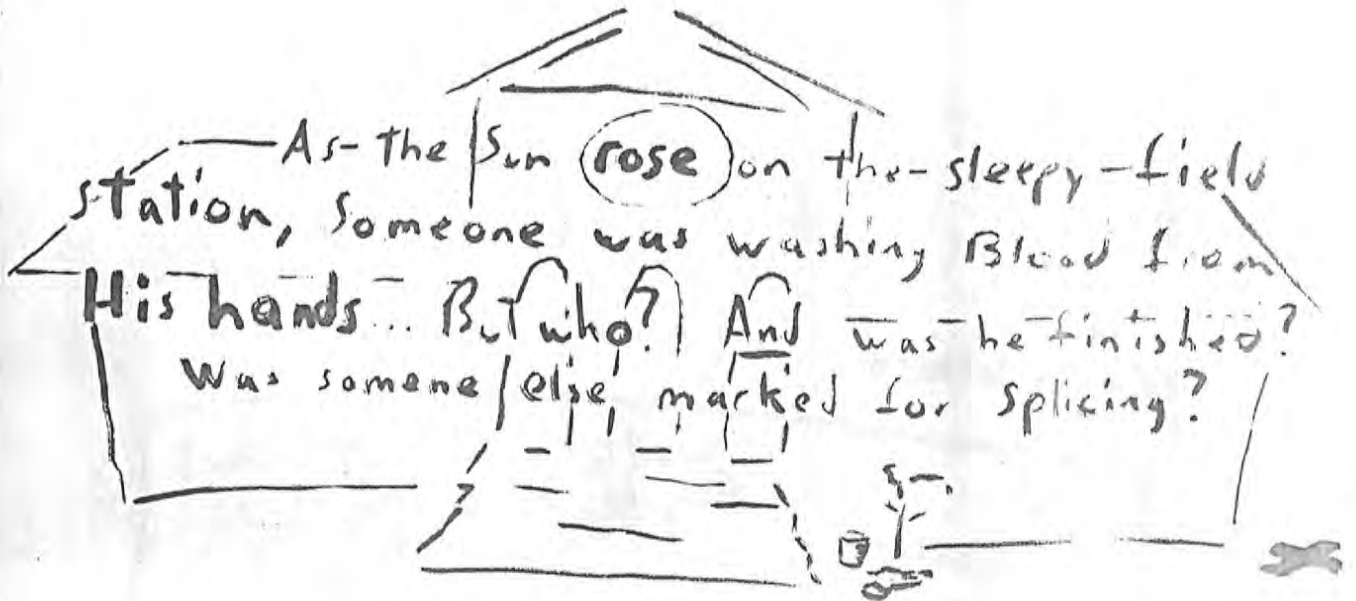 As-the Sun rose on the-sleepy-field
station, Someone was washing Blood from
His hands... But who? And was he finished?
Was somene else, marked for splicing?